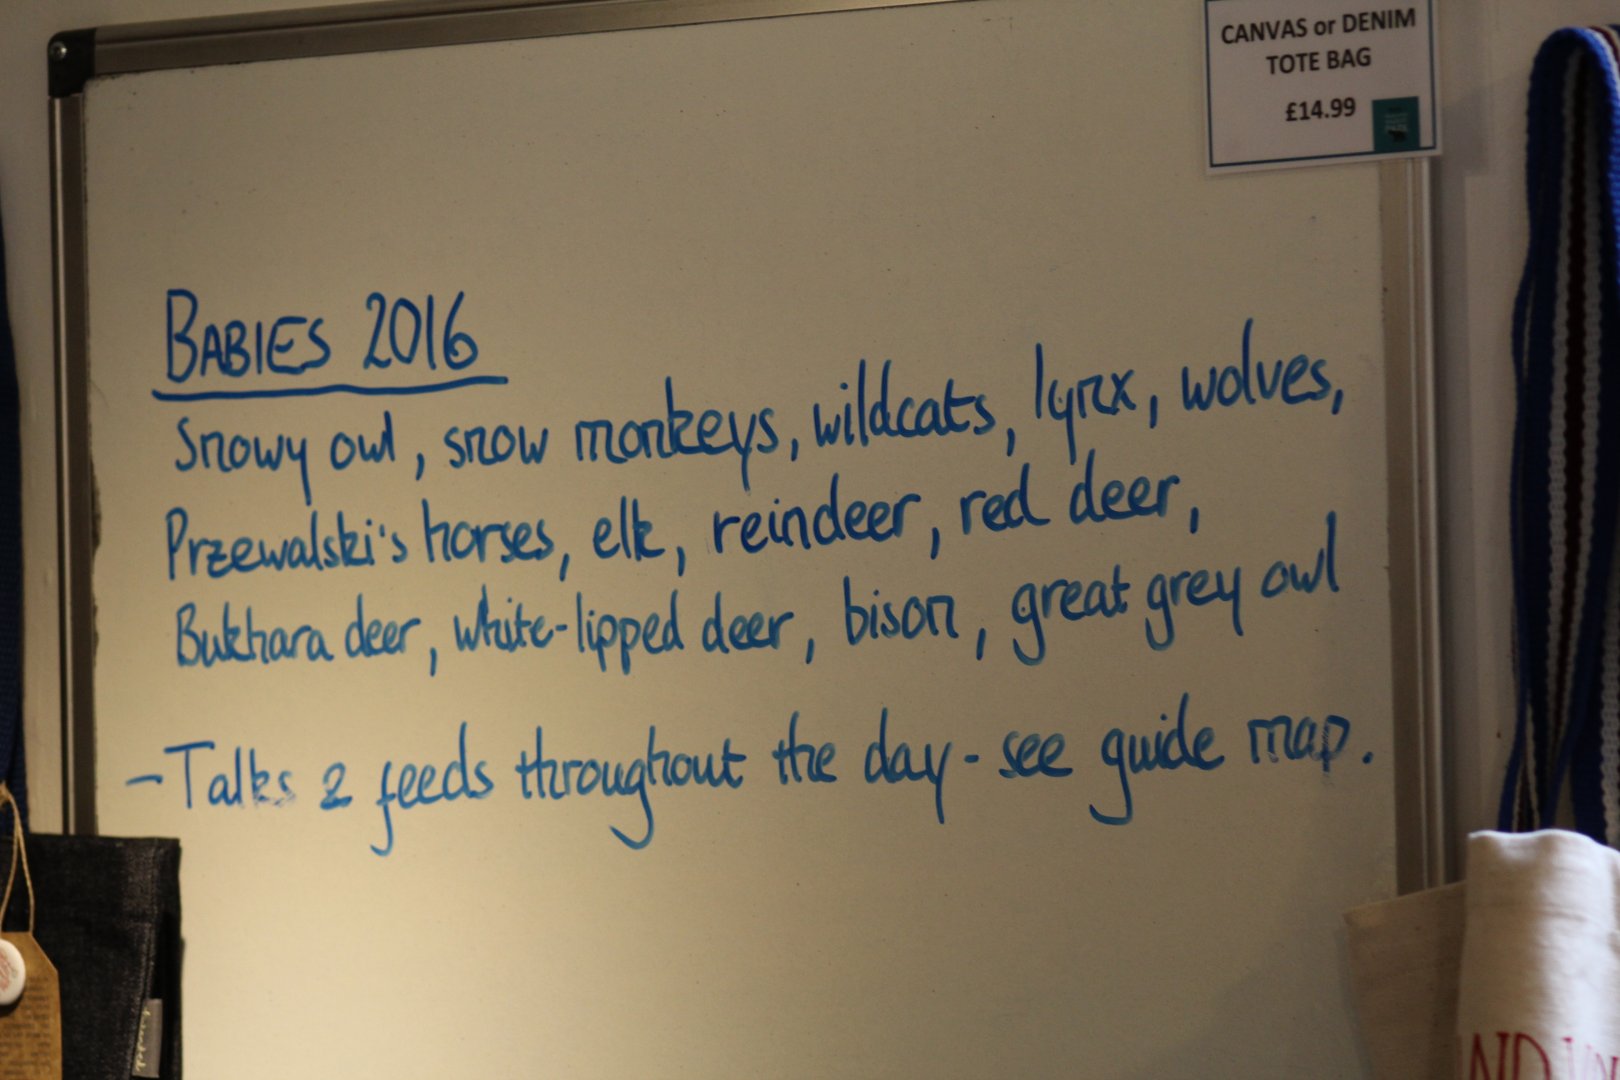 CANVAS or DENIM
TOTE BAG
£14.99
BABIES 2016
Snowy owl, snow monkeys, wildcats, lynx, wolves,
Przewalski's horses, elk, reindeer, red deer,
Bukhara deer, white-lipped deer, bison, great grey owl
- Talks & feeds throughout the day - see guide map.